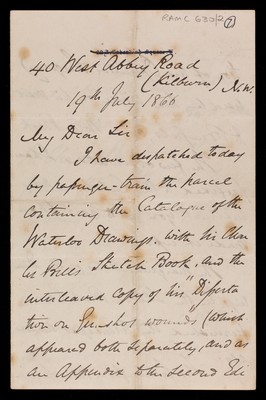 RAMC 630/2 7
40 West Abbey Road
(Kilburn) N.W.
19th July 1866
My Dear Sir
I have despatched today
by passenger-train the parcel
containing the Catalogue of the
Waterloo Drawings. with Sir Char
les Bell's Sketch Book, and the
interleaved copy of his "Disserta
tion on Gunshot wounds" (which
appeared both separately, and as
an Appendix to the second Edi